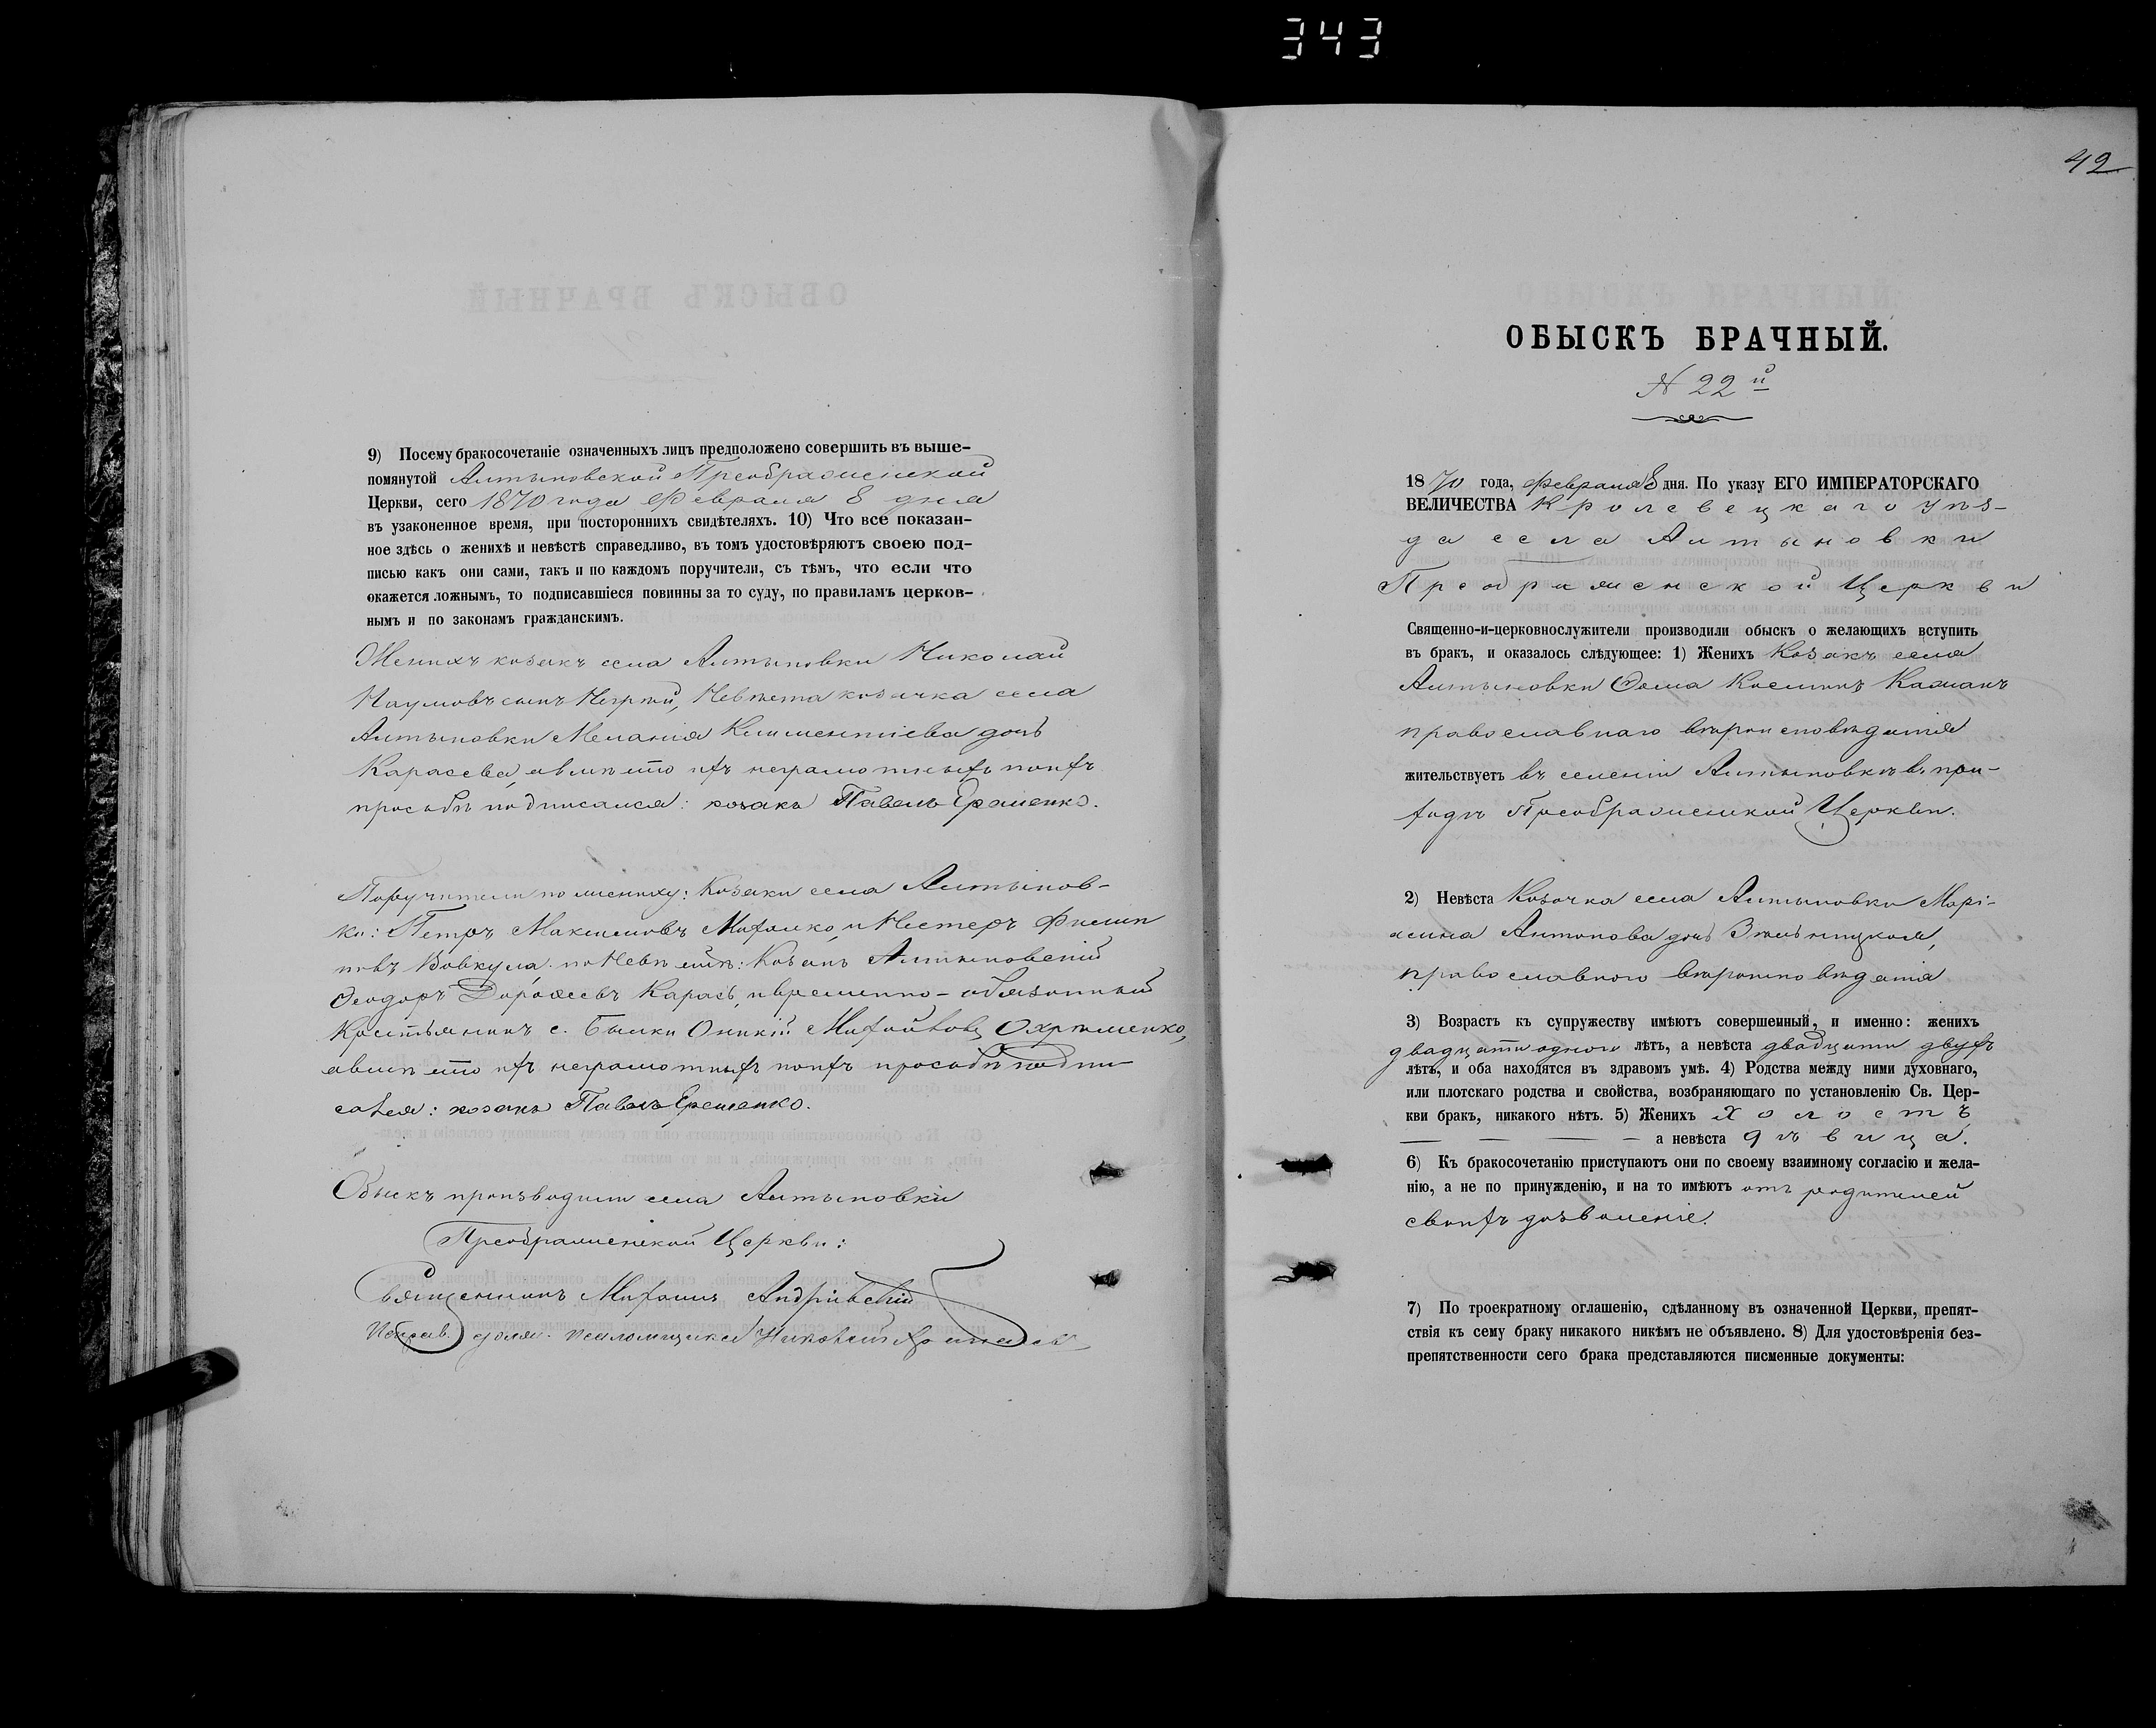 343
9) Посему бракосочетаніе означенныхъ лицъ предположено совершить въ выше-
помянутой Алтыновской Преображенской
Церкви, сего 1870 года Февраля 8 дня
въ узаконенное время, при постороннихъ свидѣтеляхъ. 10) Что все показан-
ное здѣсь о женихѣ и невѣстѣ справедливо, въ томъ удостовѣряютъ своею под-
писью какъ они сами, такъ и по каждомъ поручители, съ тѣмъ, что если что
окажется ложнымъ, то подписавшіеся повинны за то суду, по правиламъ церков-
нымъ и по законамъ гражданскимъ.
Женихъ козакъ села Алтыновки Николай
Наумовъ сынъ Невѣста козачка села
Алтыновки Меланія Климентіева дочь
Карасева, а вмѣсто ихъ неграмотныхъ по ихъ
просьбѣ подписался: козакъ Павелъ Еременко.
Поручители по жениху: Козаки села Алтынов-
ки: Петръ Максимовъ и Нестеръ Филип
повъ Вовкула. по Невѣстѣ: Козакъ Алтыновскій
Феодоръ Дорофеевъ Карась, и временно-обязанный
с. Онисій Охрѣменко,
а вмѣсто ихъ неграмотныхъ по ихъ просьбѣ подпи
сался: козакъ Павелъ Еременко.
Обыскъ производили села Алтыновки
Преображенской Церкви:
Священникъ Андріевскій
псаломщика Николай
42
ОБЫСКЪ БРАЧНЫЙ.
N 22й
1870 года, Февраля 8 дня. По указу ЕГО ИМПЕРАТОРСКАГО
ВЕЛИЧЕСТВА Кролевецкаго уѣз-
да села Алтыновки
Преображенской Церкви
Священно-и-церковнослужители производили обыскъ о желающихъ вступить
въ бракъ, и оказалось слѣдующее: 1) Женихъ Козакъ села
Алтыновки Фома Косминъ
православнаго вѣроисповѣданія
жительствуетъ въ селеніи Алтыновкѣ въ при-
ходѣ Преображенской Церкви.
2) Невѣста Козачка села Алтыновки Марі-
амна Антонова дочь
православнаго вѣроисповѣданія
3) Возрастъ къ супружеству имѣютъ совершенный, и именно: женихъ
двадцати одного лѣтъ, а невѣста двадцати двухъ
лѣтъ, и оба находятся въ здравомъ умѣ. 4) Родства между ними духовнаго,
или плотскаго родства и свойства, возбраняющаго по установленію Св. Цер-
кви бракъ, никакого нѣтъ. 5) Женихъ холостъ
— — — — а невѣста дѣвица.
6) Къ бракосочетанію приступаютъ они по своему взаимному согласію и жела-
нію, а не по принужденію, и на то имѣютъ отъ родителей
своихъ дозволеніе.
7) По троекратному оглашенію, сдѣланному въ означенной Церкви, препят-
ствія къ сему браку никакого никѣмъ не объявлено. 8) Для удостовѣренія без-
препятственности сего брака представляются писменные документы: